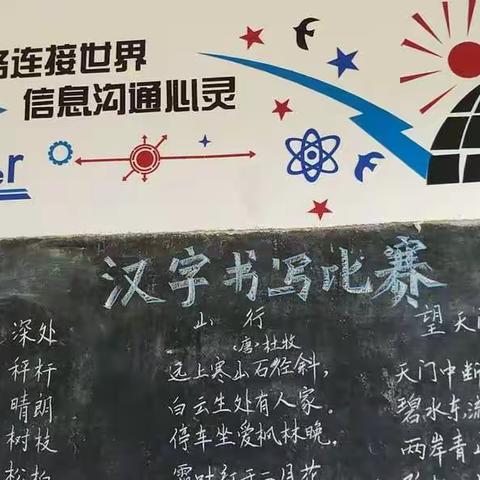 络连接世界
信息沟通心灵
er
汉字书写比赛
深处
秤杆
晴朗
树枝
松柏
山 行
〈唐〉杜牧
远上寒山石径斜，
白云生处有人家。
停车坐爱枫林晚，
霜叶红于二月花
望天门
天门中断
碧水东流
两岸青山